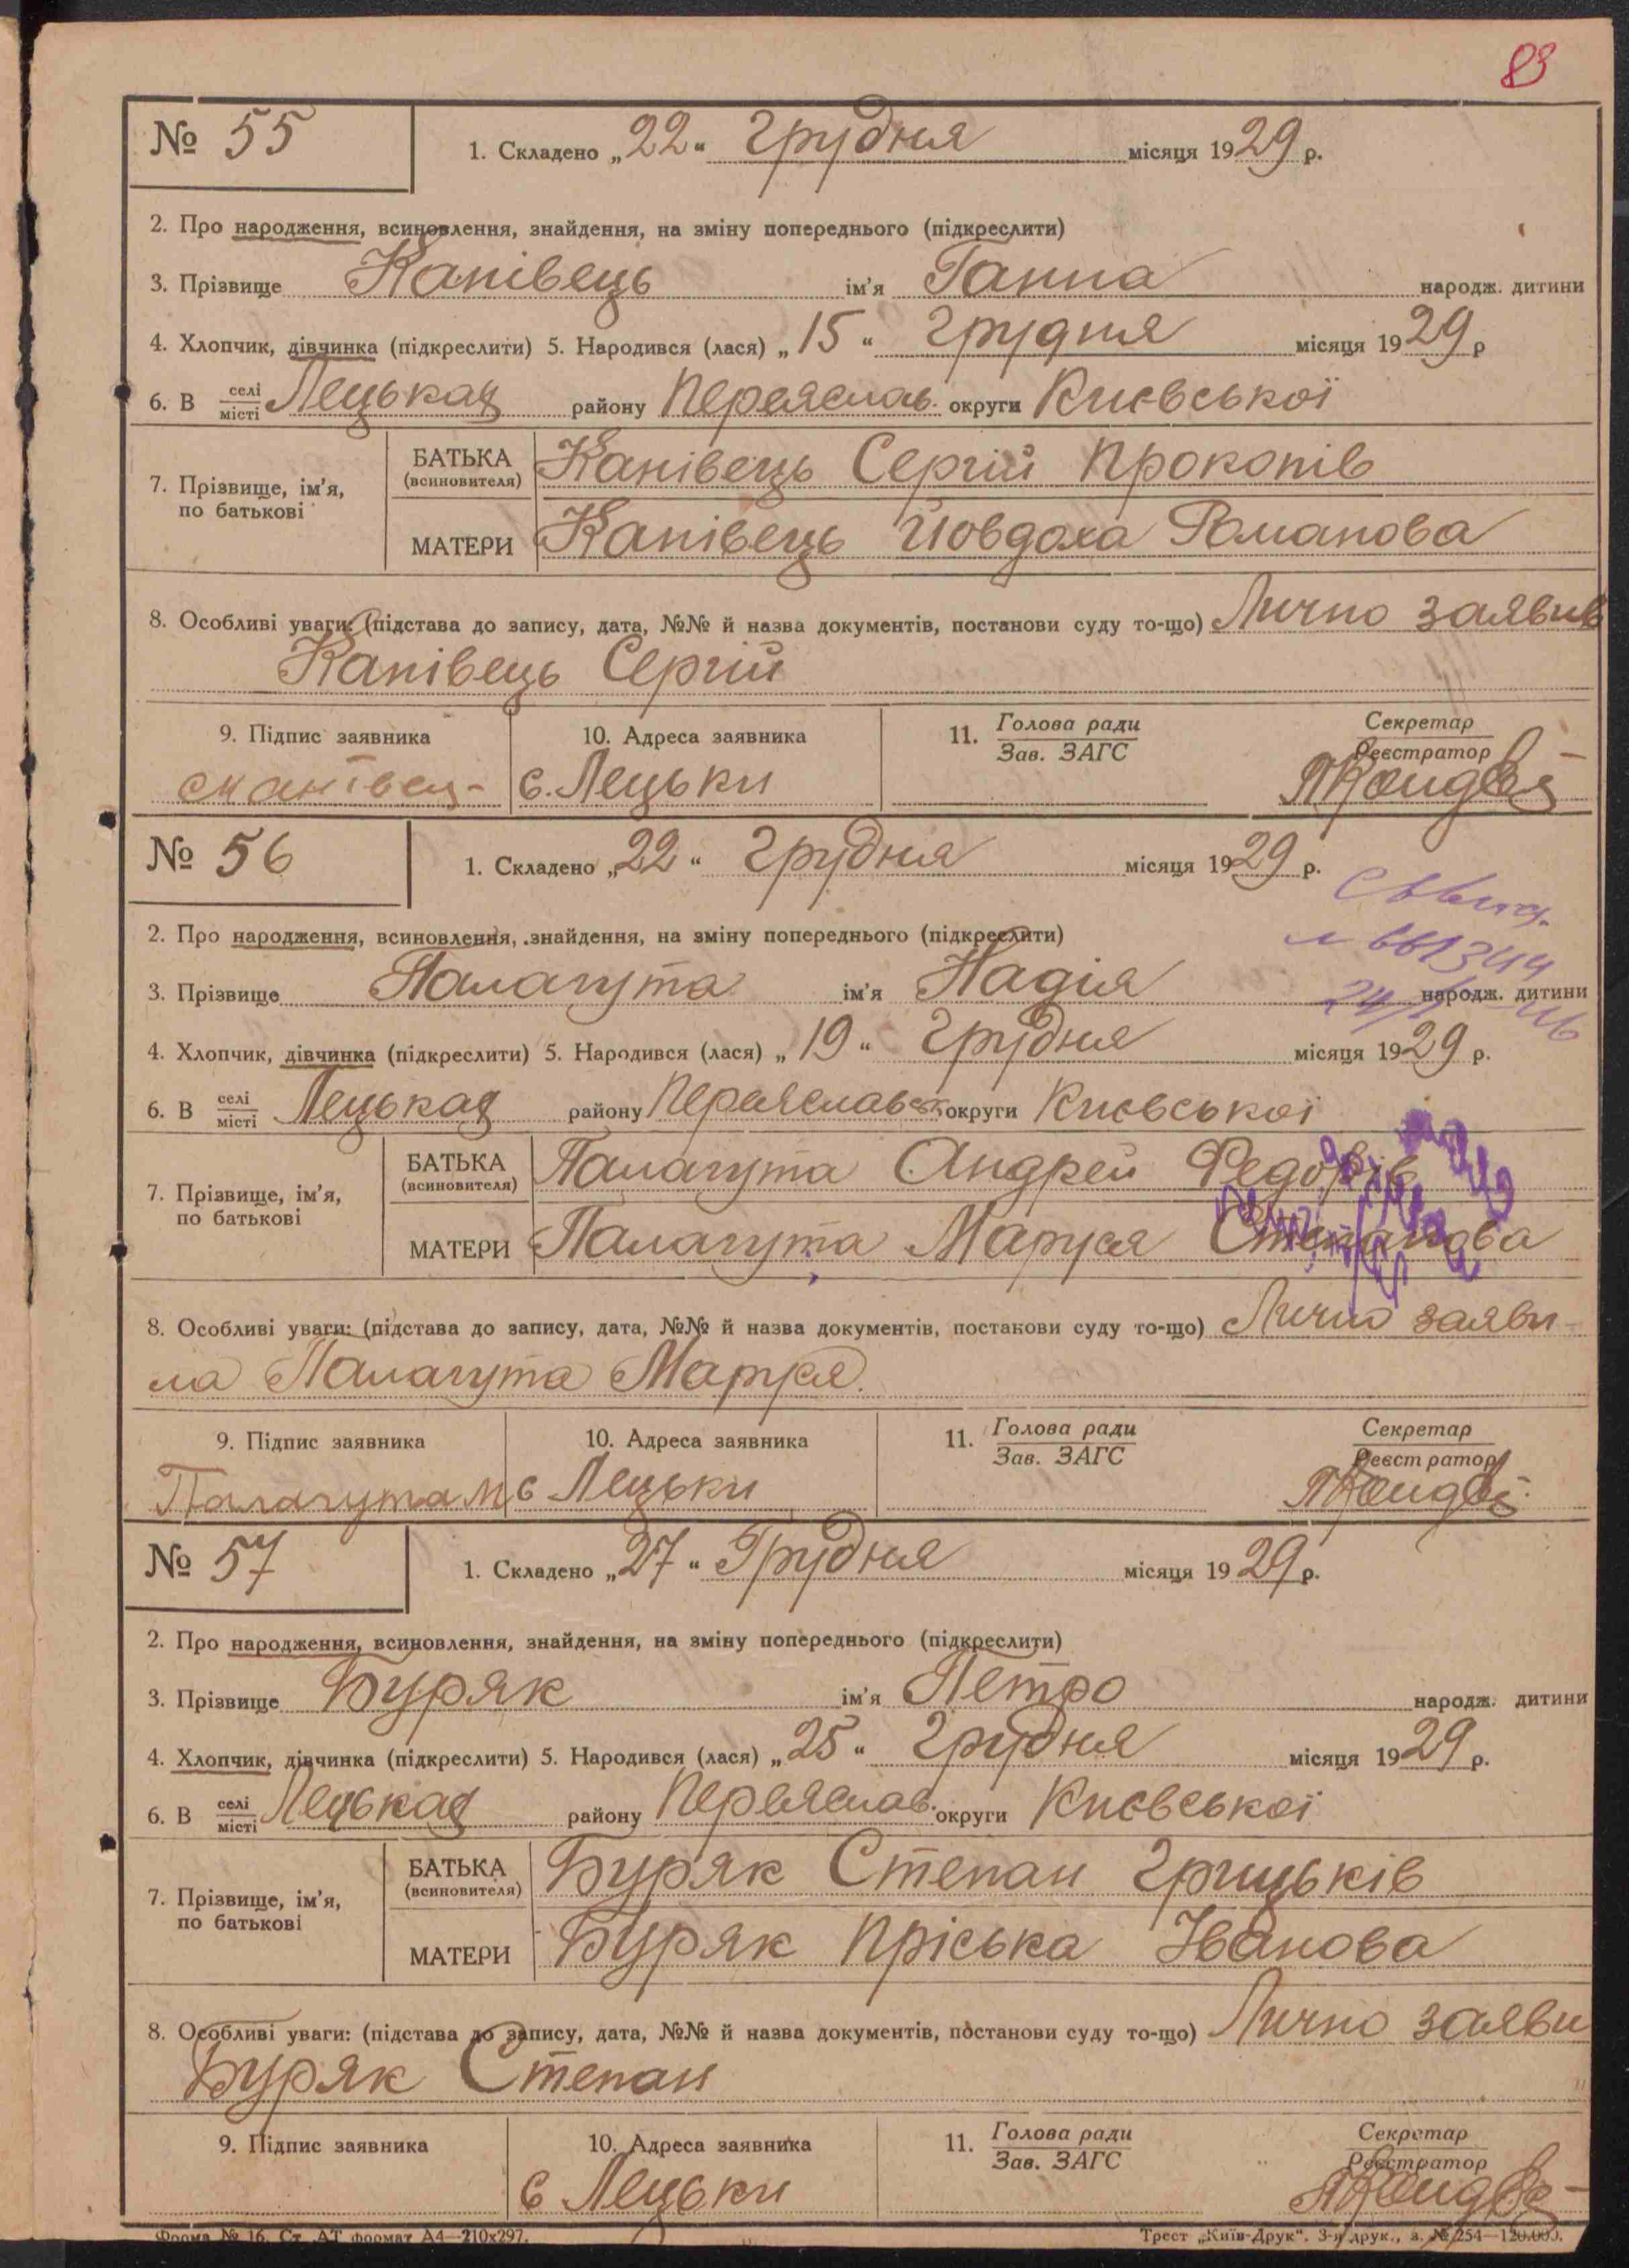 83
№ 55
1. Складено „22“ Грудня місяця 1929 р.
2. Про народження, всиновлення, знайдення, на зміну попереднього (підкреслити)
3. Прізвище Канівець ім'я Ганна народж. дитини
4. Хлопчик, дівчинка (підкреслити) 5. Народився (лася) „15“ Грудня місяця 1929 р
6. В селі місті Лецьках району Переяслав. округи Києвської
7. Прізвище, ім'я, по батькові
БАТЬКА (всиновителя) Канівець Сергій Прокопів
МАТЕРИ Канівець Йовдоха Романова
8. Особливі уваги: (підстава до запису, дата, №№ й назва документів, постанови суду то-що) Лично заявив
Канівець Сергій
9. Підпис заявника 10. Адреса заявника 11. Голова ради Зав. ЗАГС Секретар Реєстратор
с. Лецьки
№ 56
1. Складено „22“ Грудня місяця 1929 р.
2. Про народження, всиновлення, знайдення, на зміну попереднього (підкреслити)
3. Прізвище Палагута ім'я Надія народж. дитини
4. Хлопчик, дівчинка (підкреслити) 5. Народився (лася) „19“ Грудня місяця 1929 р.
6. В селі місті Лецьках району Переяславськ округи Києвської
7. Прізвище, ім'я, по батькові
БАТЬКА (всиновителя) Палагута Андрей Федорів
МАТЕРИ Палагута Маруся Степанова
8. Особливі уваги: (підстава до запису, дата, №№ й назва документів, постанови суду то-що) Лично заяви-
ла Палагута Маруся.
9. Підпис заявника 10. Адреса заявника 11. Голова ради Зав. ЗАГС Секретар Реєстратор
Палагута М с Лецьки
№ 57
1. Складено „27“ Грудня місяця 1929 р.
2. Про народження, всиновлення, знайдення, на зміну попереднього (підкреслити)
3. Прізвище Буряк ім'я Петро народж. дитини
4. Хлопчик, дівчинка (підкреслити) 5. Народився (лася) „25“ Грудня місяця 1929 р.
6. В селі місті Лецьках району Переяслав. округи Києвської
7. Прізвище, ім'я, по батькові
БАТЬКА (всиновителя) Буряк Степан Грицьків
МАТЕРИ Буряк Пріська Іванова
8. Особливі уваги: (підстава до запису, дата, №№ й назва документів, постанови суду то-що) Лично заяви
Буряк Степан
9. Підпис заявника 10. Адреса заявника 11. Голова ради Зав. ЗАГС Секретар Реєстратор
с Лецьки
Форма № 16. Ст. АТ формат А4—210х297. Трест „Київ-Друк“. 3-я друк., з. № 254—120.000.